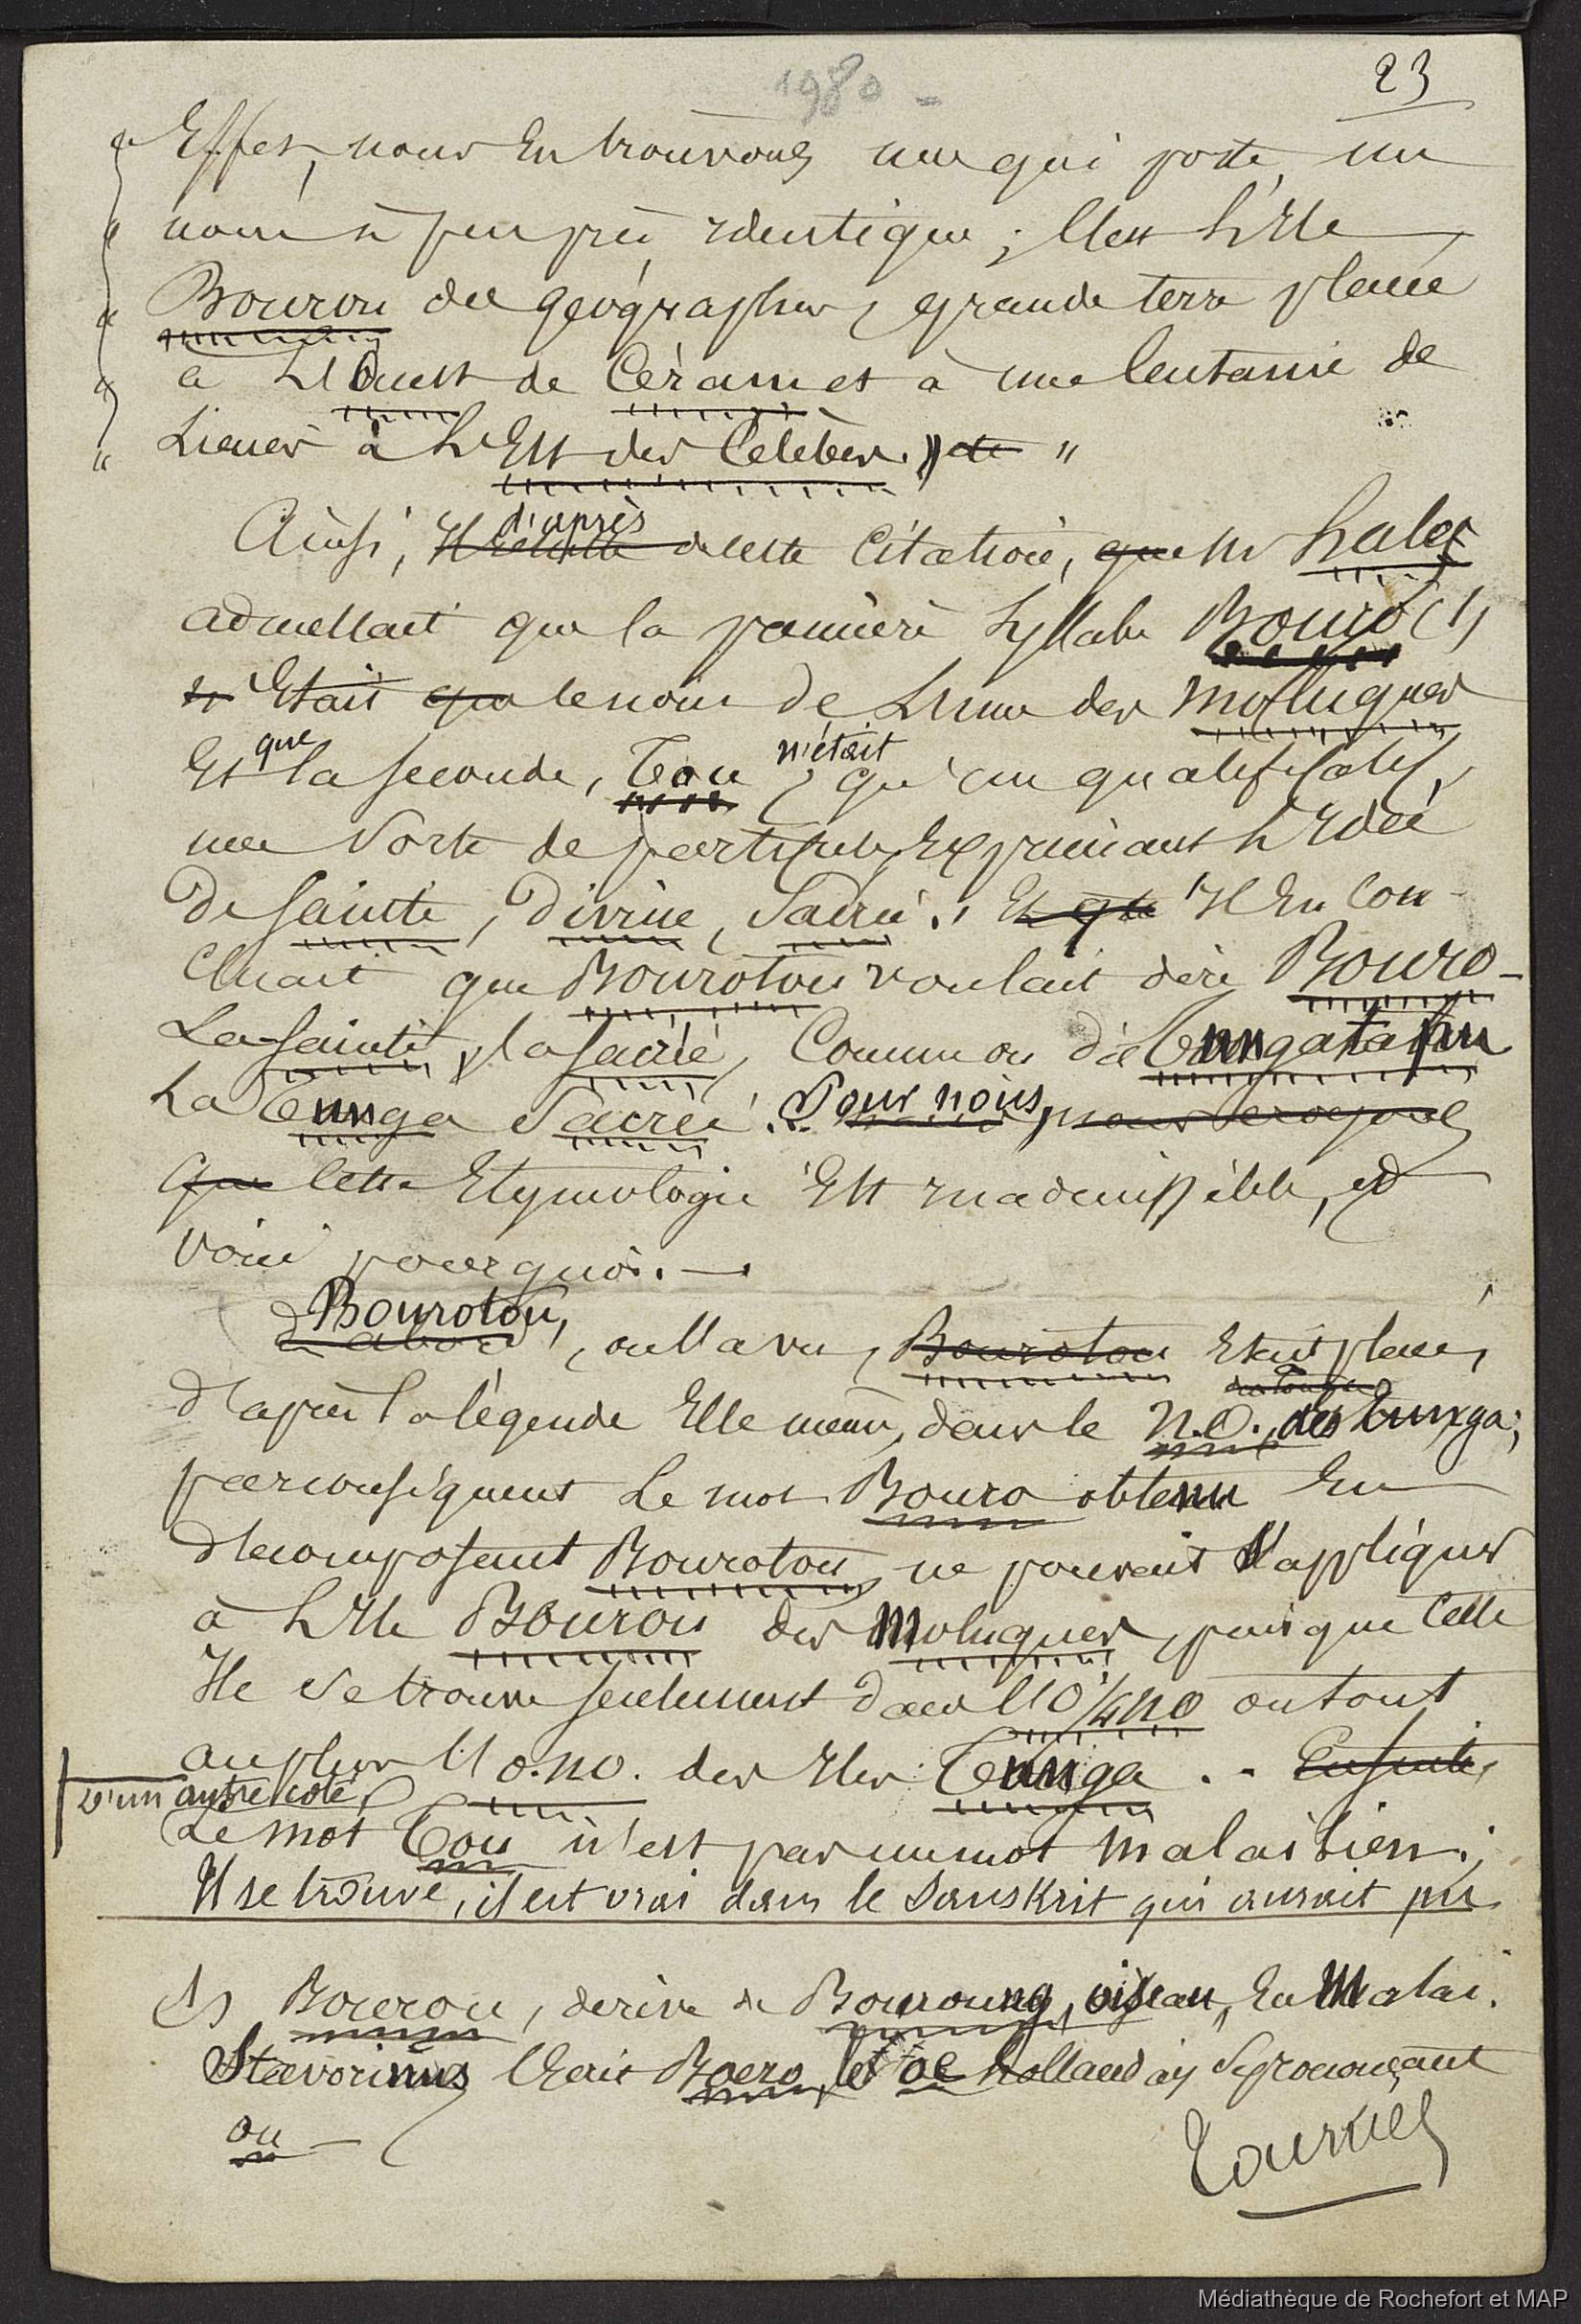 1980 -
23
« Effet, nous en trouvons une qui porte un
« nom à peu près identique ; c'est l'Ile
« Bourou des géographes, grande terre placée
« à l'Ouest de Céram et à une centaine de
« Lieues à l'Est des Celèbes. » de "
d'après
Ainsi, Il résulte de cette Citation, que Mr hales
admettait que la première Syllabe Bouro (1)
n' Etait que le nom de L'une des moluques
que n'était
Et la seconde, Tou, qu'un qualificatif,
une Sorte de particule, Exprimant L'Idée
De Sainte, Divine, Sacrée. Et que Il En Con-
cluait que Bourotou voulait dire Bouro-
La Sainte, la sacrée, Comme on dit Tungatabu
La Tunga Sacrée. Pour nous, nous croyons
que cette Etymologie Est Inadmissible, et
voici pourquoi. —
Bourotou,
d'abord, on l'a vu, Bourotou Etait placée,
des Tunga
D'après la légende Elle même, dans le N.O. des Tunga ;
par conséquent Le mot Bouro obtenu En
Décomposant Bourotou, ne pouvait S'appliquer
à L'Ile Bourou des Moluques, puisque Cette
Ile Se trouve seulement dans l'O 1/4 NO ou tout
au plus l'O.N.O. des Iles Tunga. - Ensuite,
D'un autre coté,
Le mot Tou n'est pas un mot Malaisien ;
Il se trouve, il est vrai dans le Sanskrit qui aurait pu
(1) Bourou, dérive de Bouroung, oiseau, En Malai.
Stavorinus Ecrit Boero, l'oe hollandais Se prononçant
ou —
Tournez
Médiathèque de Rochefort et MAP